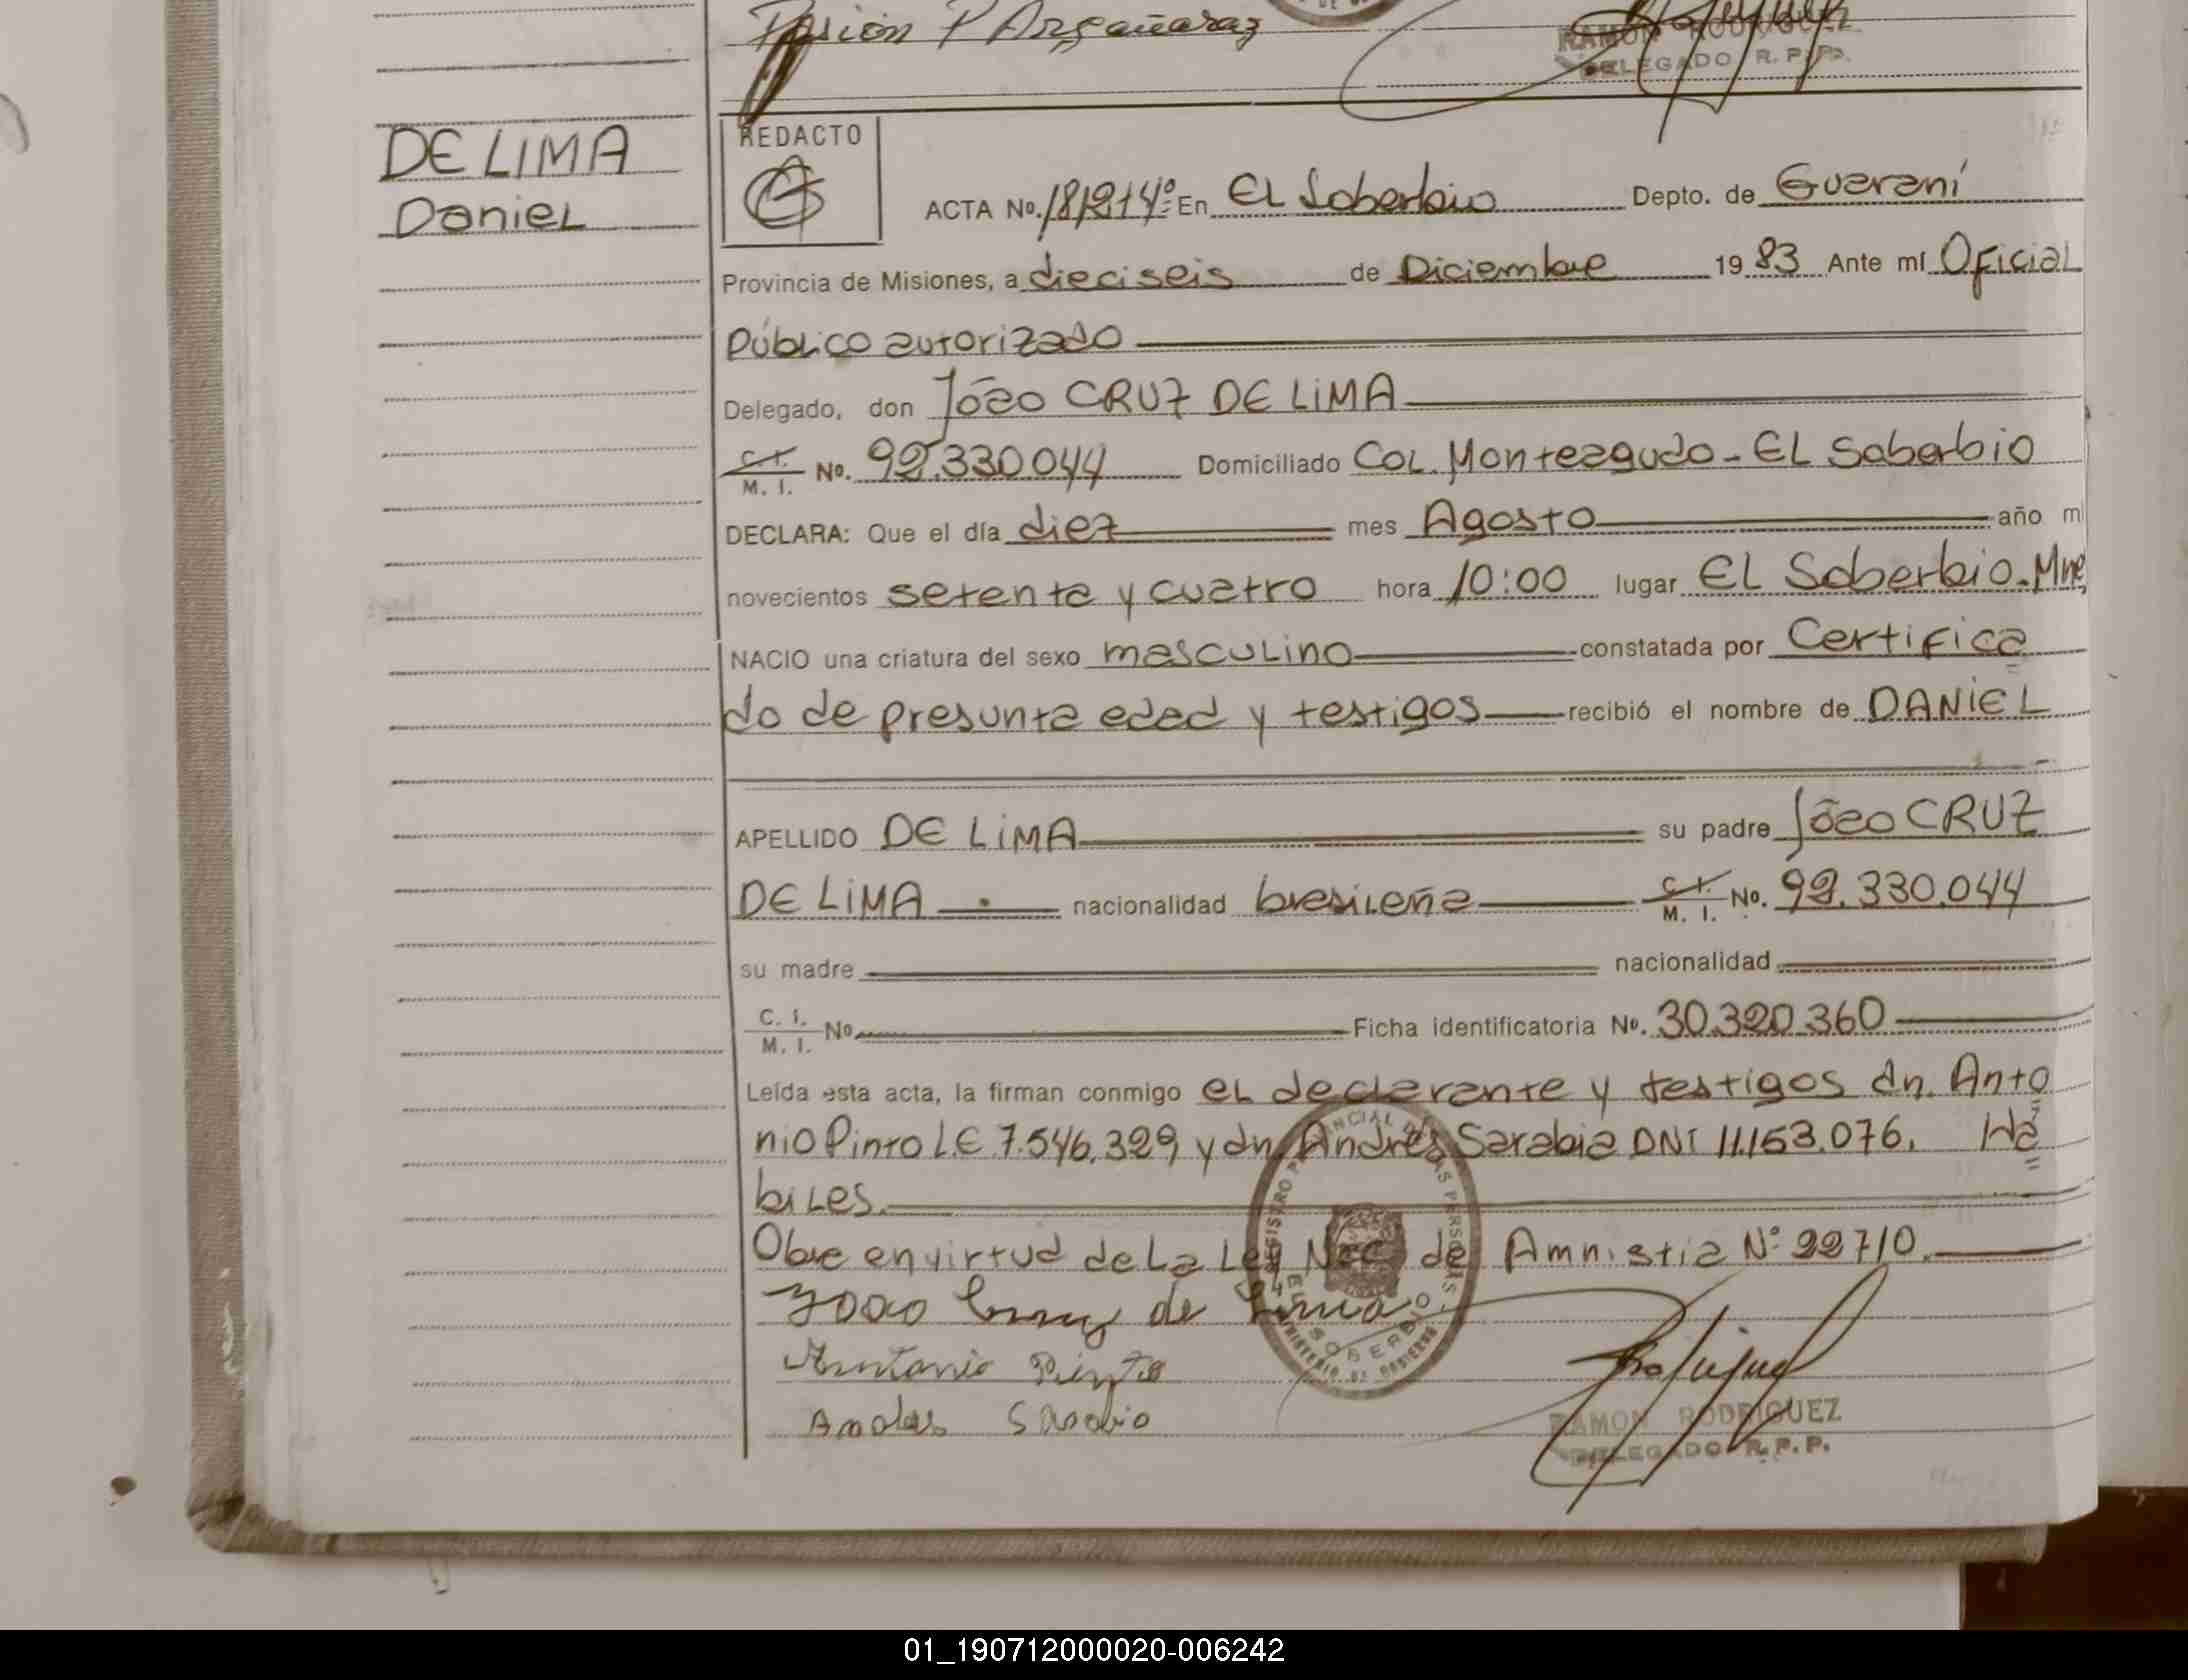 Pasión P Argañaraz
RAMON RODRIGUEZ
DELEGADO R. P. P.
DE LIMA
Daniel
REDACTO
ACTA No. En EL Soberbio Depto. de Guaraní
Provincia de Misiones, a dieciseis de Diciembre 19 83 Ante mí Oficial
Público autorizado
Delegado, don Jõao CRUZ DE LiMA
C.I. M. I. No. 92.330.044 Domiciliado Col. Monteagudo - EL Soberbio
DECLARA: Que el día diez mes Agosto año m
novecientos setenta y cuatro hora 10:00 lugar EL Soberbio. Mnes
NACIO una criatura del sexo masculino constatada por Certifica
do de presunta edad y testigos recibió el nombre de DANiEL
APELLIDO DE LiMA su padre Jõao CRUZ
DE LiMA . nacionalidad brasileña C.I. M. I. No. 92.330.044
su madre nacionalidad
C. I. M. I. No Ficha identificatoria No. 30.320.360
Leída esta acta, la firman conmigo el declarante y testigos dn. Anto
nio Pinto L.E 7.546.329 y dn Andrés Sarabia DNI 11.153.076. Há
biles.
Obre en virtud de La Ley Nac de Amnistia N° 22710.
Joao Cruz de Lima
Antonio Pinto
Andres Sarabia
EL SOBERBIO
MINISTERIO DE GOBIERNO
RAMON RODRIGUEZ
DELEGADO R. P. P.
01_190712000020-006242